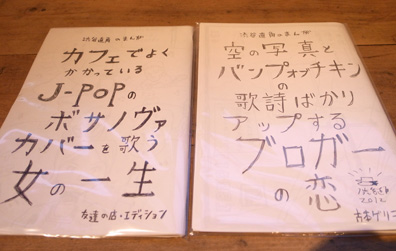 渋谷直角のまんが
カフェでよく
かかっている
J-POPの
ボサノヴァ
カバーを歌う
女の一生
友達の店・エディション
渋谷直角のまんが
空の写真と
バンプオブチキン
の
歌詩ばかり
アップする
ブロガー
の恋
2012